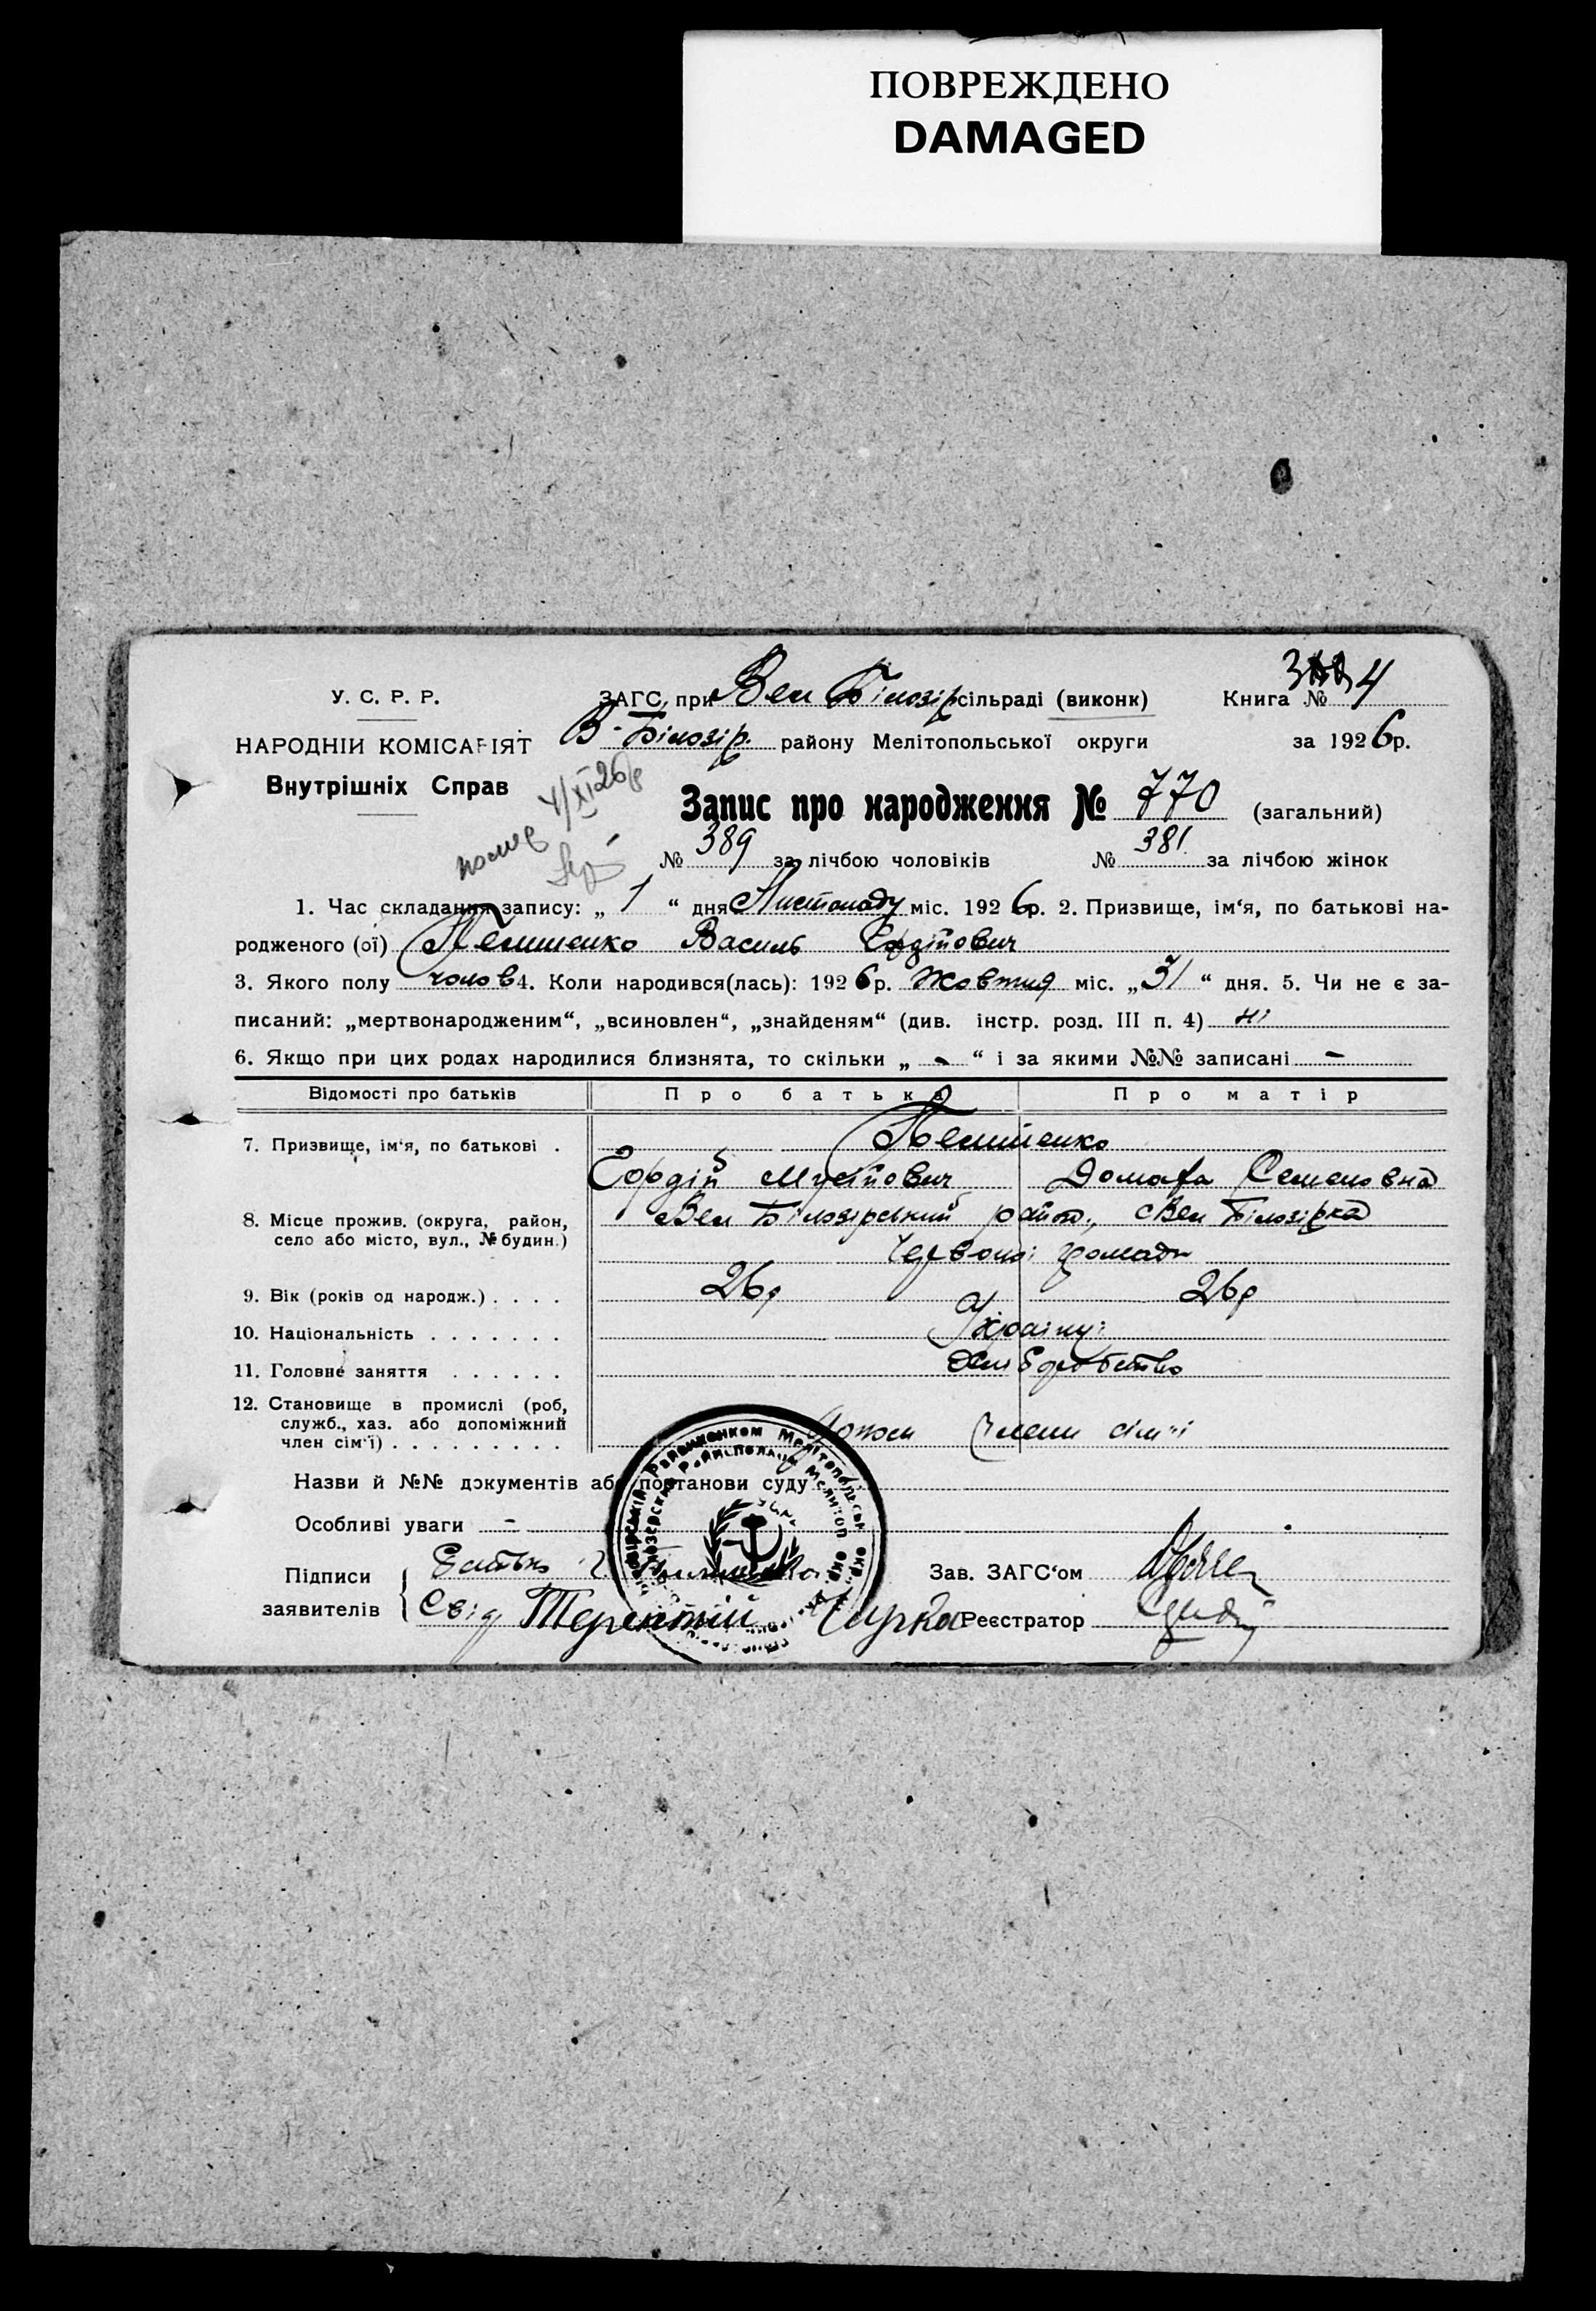 ПОВРЕЖДЕНО
DAMAGED
У. С. Р. Р.
НАРОДНІЙ КОМІСАРІЯТ
Внутрішніх Справ
ЗАГС при Вел Білозір сільраді (виконк)
В-Білозір. району Мелітопольської округи
Книга № 4
за 1926р.
4/XI 26р
Запис про народження № 770 (загальний)
№ 389 за лічбою чоловіків № 381 за лічбою жінок
1. Час складання запису: „ 1 “ дня Листопаду міс. 1926р. 2. Призвище, ім‘я, по батькові на-
родженого (ої) Василь Гордійович
3. Якого полу чолов 4. Коли народився(лась): 1926р. Жовтня міс. „31“ дня. 5. Чи не є за-
писаний: „мертвонародженим“, „всиновлен“, „знайденям“ (див. інстр. розд. III п. 4) ні
6. Якщо при цих родах народилися близнята, то скільки „ - “ і за якими №№ записані -
Відомості про батьків Про батька Про матір
7. Призвище, ім‘я, по батькові .
Гордій Мусійович Домаха Семеновна
8. Місце прожив. (округа, район,
село або місто, вул., № будин.)
Вел Білозірський район, Вел Білозірка
Червоної громади
9. Вік (років од народж.) . . . . 26р 26р
10. Національність . . . . . . . Україну:
11. Головне заняття . . . . . . Хліборобство
12. Становище в промислі (роб,
служб., хаз. або допоміжний
член сім‘ї) . . . . . . . . . Допом члени сім‘ї
Назви й №№ документів або постанови суду
Особливі уваги -
Підписи
заявителів
Батько
Свід Терентій
Зав. ЗАГС‘ом
Реєстратор